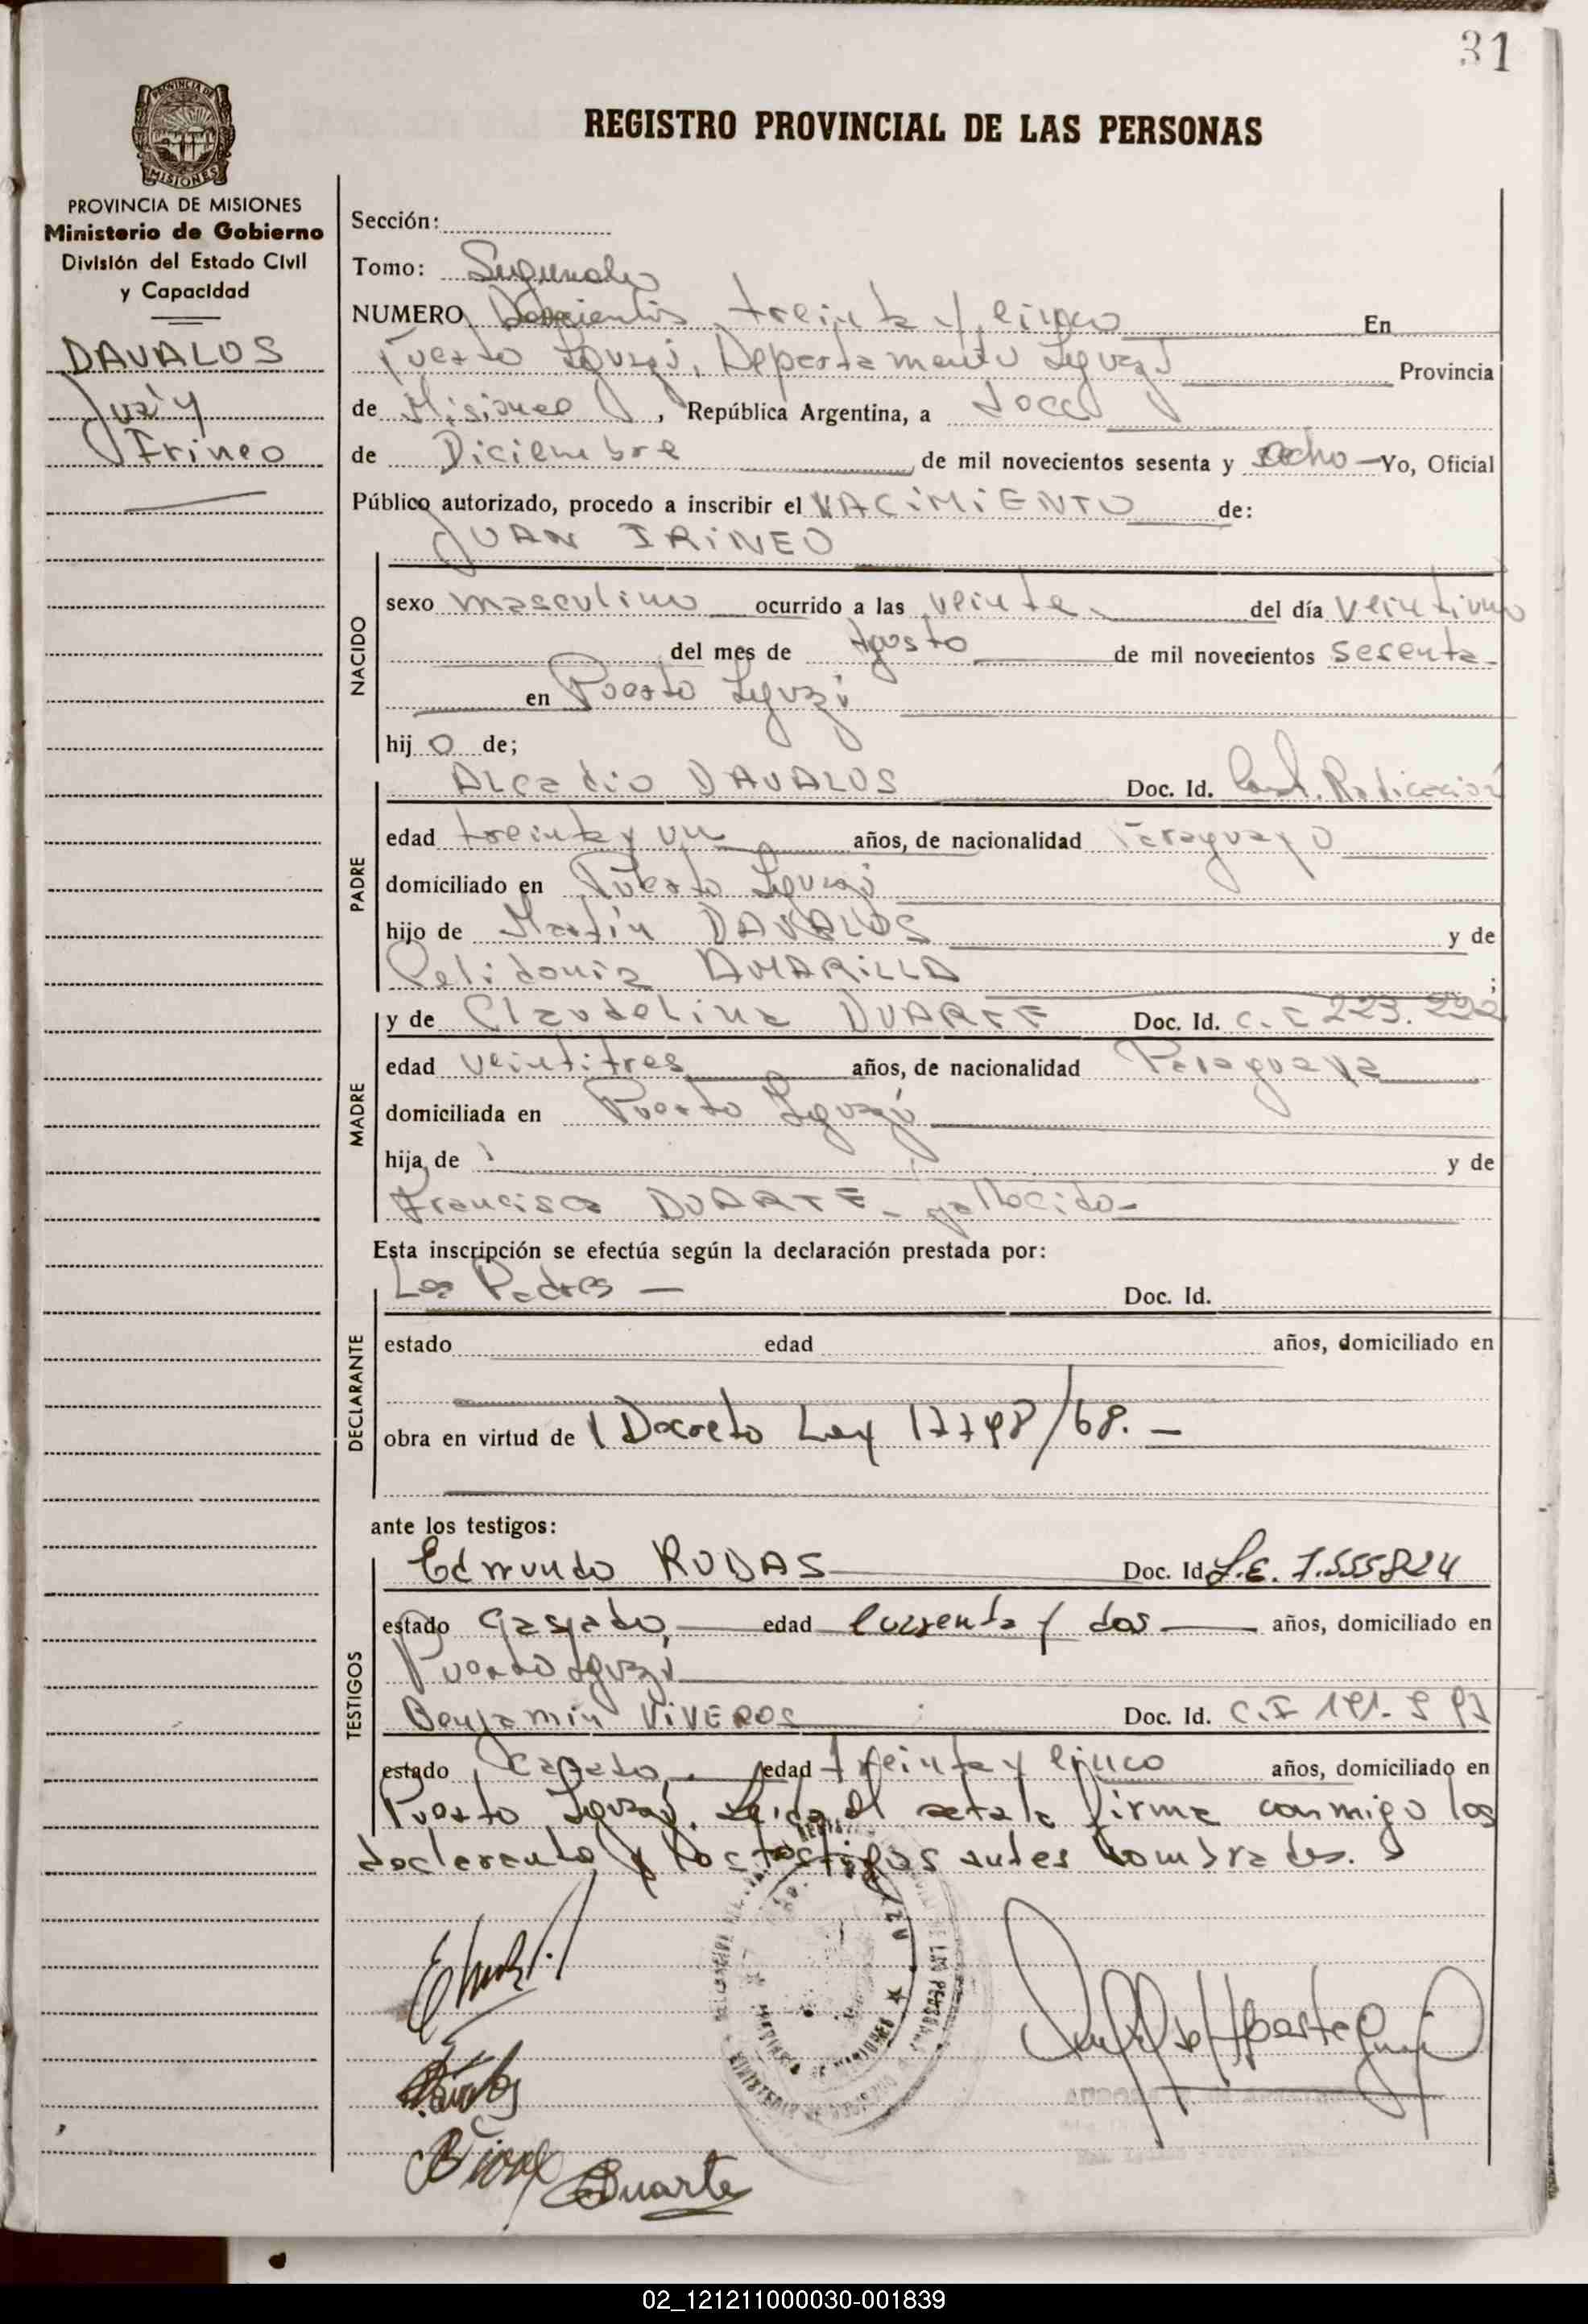 31
REGISTRO PROVINCIAL DE LAS PERSONAS
PROVINCIA DE MISIONES
Ministerio de Gobierno
División del Estado Civil
y Capacidad
DAVALOS
Juan
Irineo
Sección:
Tomo: Segundo
NUMERO Doscientos treinta y cinco En
Puerto Iguazú, Departamento Iguazú Provincia
de Misiones, República Argentina, a doce
de Diciembre de mil novecientos sesenta y ocho Yo, Oficial
Público autorizado, procedo a inscribir el NACIMIENTO de:
JUAN IRINEO
NACIDO
sexo masculino ocurrido a las veinte del día veintiuno
del mes de Agosto de mil novecientos sesenta
en Puerto Iguazú
hijo de;
PADRE
Alcadio DAVALOS Doc. Id. Cert. Radicación
edad treinta y un años, de nacionalidad Paraguayo
domiciliado en Puerto Iguazú
hijo de Martín DAVALOS y de
Celidonia AMARILLA ;
MADRE
y de Claudelina DUARTE Doc. Id. C. I 223.292
edad veintitres años, de nacionalidad Paraguaya
domiciliada en Puerto Iguazú
hija de y de
Francisca DUARTE - fallecido -
Esta inscripción se efectúa según la declaración prestada por:
DECLARANTE
Los Padres — Doc. Id.
estado edad años, domiciliado en
obra en virtud de Decreto Ley 17748/68. —
ante los testigos:
TESTIGOS
Edmundo RODAS Doc. Id. L.E. 7.555824
estado Casado, edad cuarenta y dos años, domiciliado en
Puerto Iguazú
Benjamin VIVEROS Doc. Id. C.I
estado casado, edad treinta y cinco años, domiciliado en
Puerto Iguazú. Leida el acta la firma conmigo los
declarante y los testigos antes nombrados.
Davalos
Duarte
02_121211000030-001839